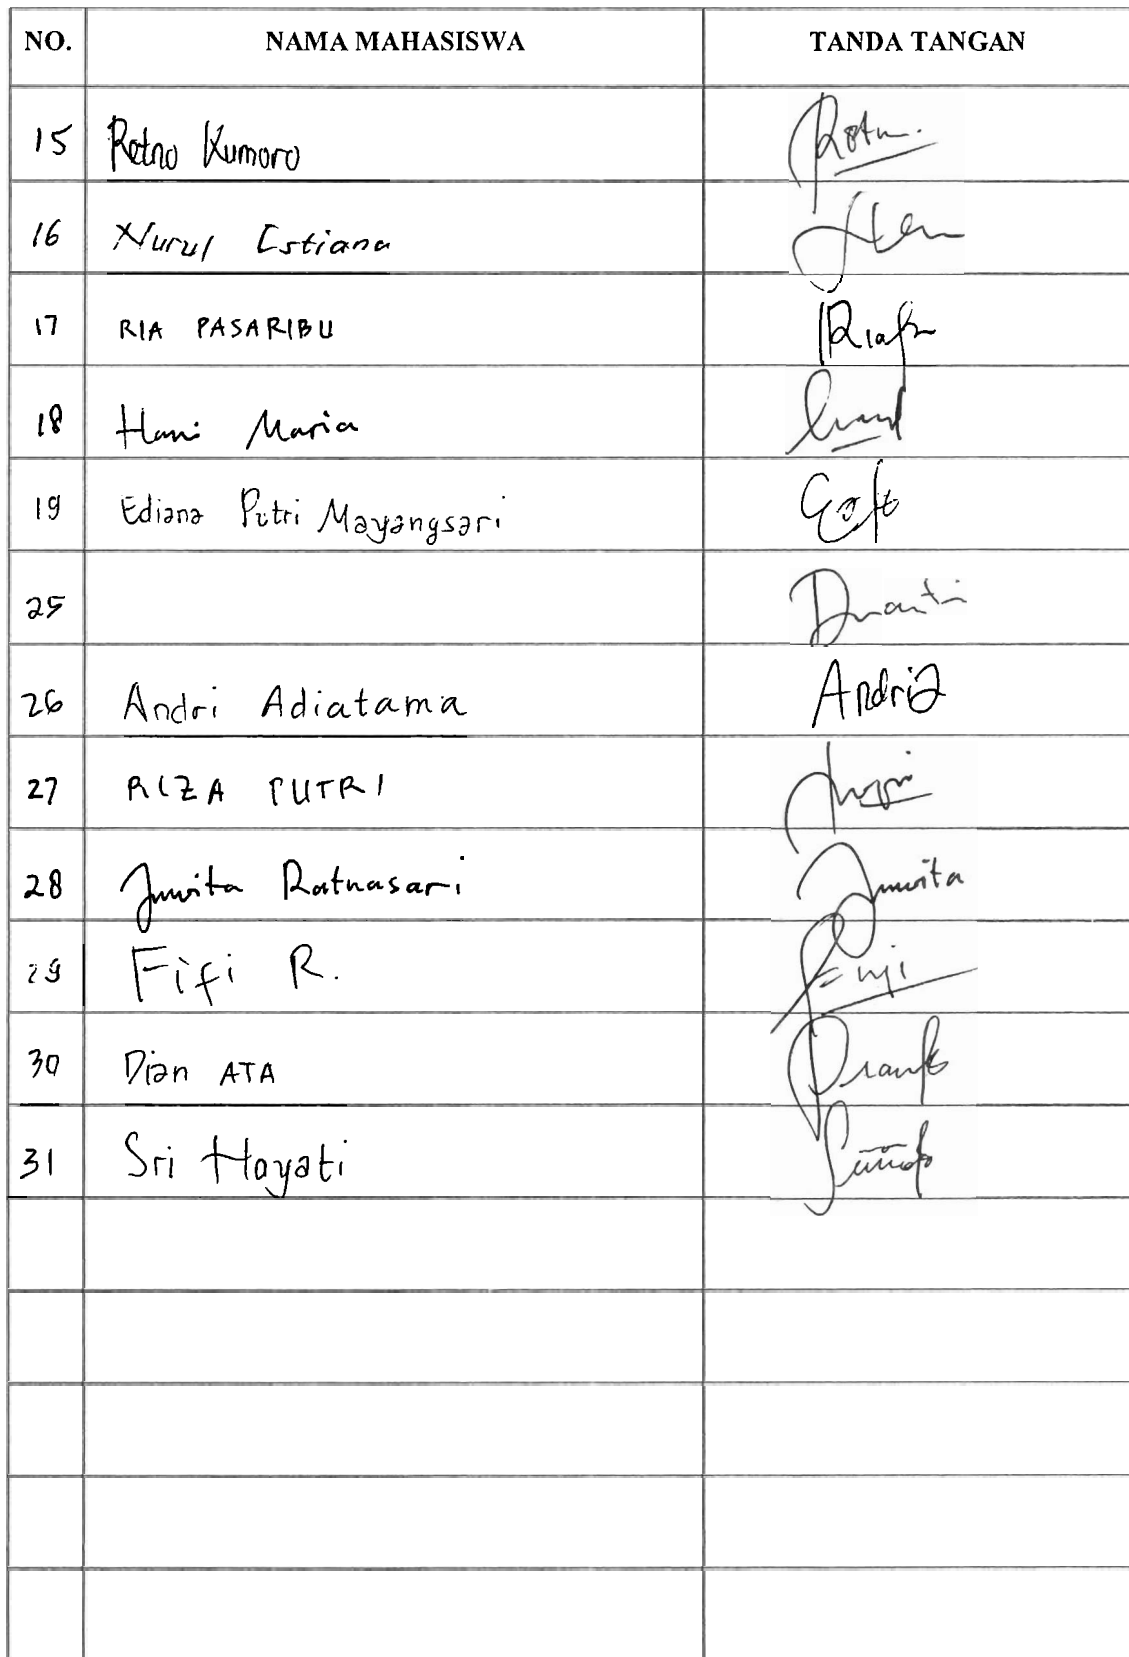 NO. NAMA MAHASISWA TANDA TANGAN
15 Retno Kumoro Retn.
16 Nurul Estiana
17 RIA PASARIBU
18 Hani Maria
19 Ediana Putri Mayangsari
25 Dwanti
26 Andri Adiatama Andri
27 RIZA PUTRI
28 Juwita Ratnasari Juwita
29 Fifi R.
30 Dian ATA
31 Sri Hayati